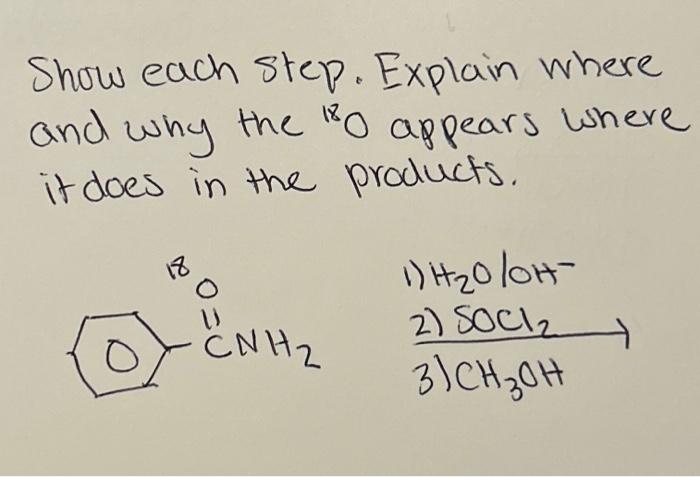 Show each step. Explain where
and why the ¹⁸O appears where
it does in the products.
18
O
CNH₂
1) H₂O/OH⁻
2) SOCl₂
3) CH₃OH